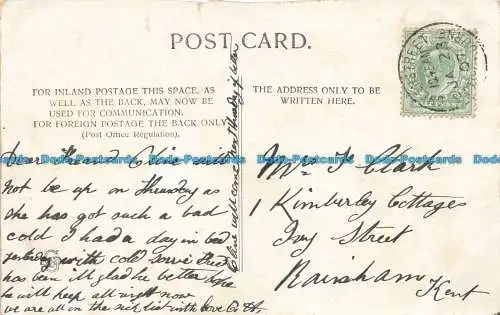 POST CARD.
FOR INLAND POSTAGE THIS SPACE, AS
WELL AS THE BACK, MAY NOW BE
USED FOR COMMUNICATION.
FOR FOREIGN POSTAGE THE BACK ONLY
(Post Office Regulation).
THE ADDRESS ONLY TO BE
WRITTEN HERE.
Dear Friend will
not be up on Thursday as
she has got such a bad
cold I had a day in bed
yesterday with cold Fred
has been ill glad he better hope
he will keep all right now
we are all on the sick list with love
will come Thursday
Mrs T Clark
1 Kimberley Cottages
Ivy Street
Rainham
Kent
Dodo-Postcards
Dodo-Postcards
Dodo-Postcards
Dodo-Postcards
Dodo-Postcards